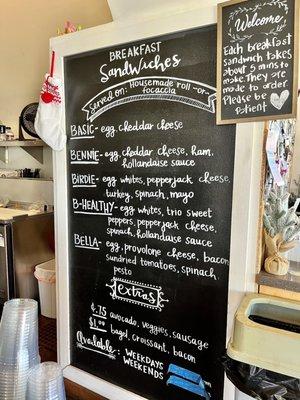 BREAKFAST
Sandwiches
Served on: Housemade roll -or-
focaccia
BASIC- egg, cheddar cheese
BENNIE- egg, cheddar cheese, ham,
hollandaise sauce
BIRDIE- egg whites, pepperjack cheese,
turkey, spinach, mayo
B-HEALTHY- egg whites, trio sweet
peppers, pepperjack cheese,
spinach, hollandaise sauce
BELLA- egg, provolone cheese, bacon
sundried tomatoes, spinach,
pesto
Extras
$.75 avocado, veggies, sausage
$1.00 bagel, croissant, bacon
Available: WEEKDAYS
WEEKENDS
Welcome
Each breakfast
sandwich takes
about 5 mins to
make They are
made to order
Please be
patient